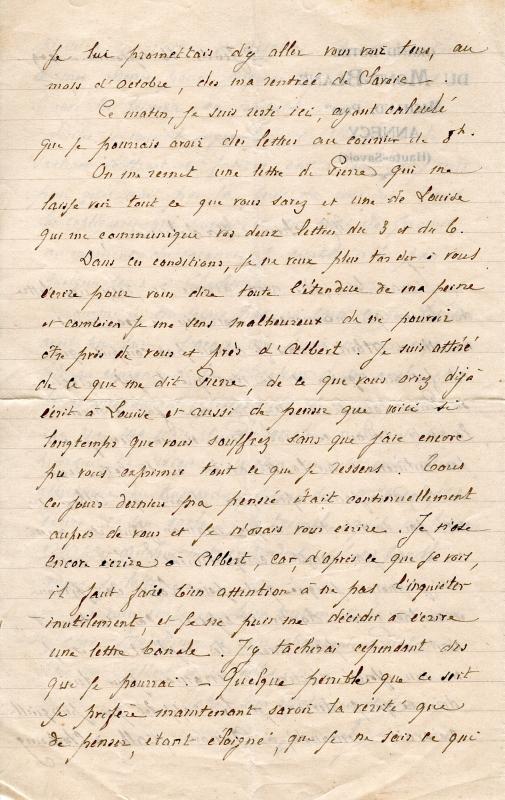 Je lui promettais d'y aller vous voir tous, au
mois d'Octobre, dès ma rentrée de Savoie.
Ce matin, je suis resté ici, ayant calculé
que je pourrais avoir des lettres au courrier de 8h.
On me remet une lettre de Pierre qui me
laisse voir tout ce que vous savez et une de Louise
qui me communique vos deux lettres du 3 et du 6.
Dans ces conditions, je ne veux plus tarder à vous
écrire pour vous dire toute l'étendue de ma peine
et combien je me sens malheureux de ne pouvoir
être près de vous et près d'Albert. Je suis attéré
de ce que me dit Pierre, de ce que vous aviez déjà
écrit à Louise et aussi de penser que voici si
longtemps que vous souffrez sans que j'aie encore
pu vous exprimer tout ce que je ressens. Tous
ces jours derniers ma pensée était continuellement
auprès de vous et je n'osais vous écrire. Je n'ose
encore écrire à Albert, car, d'après ce que je vois,
il faut faire bien attention à ne pas l'inquiéter
inutilement, et je ne puis me décider à écrire
une lettre banale. J'y tâcherai cependant dès
que je pourrai. - Quelque pénible que ce soit
je préfère maintenant savoir la vérité que
de penser, étant éloigné, que je ne sais ce qui
DU M
ANNECY
(Haute-Savoie)